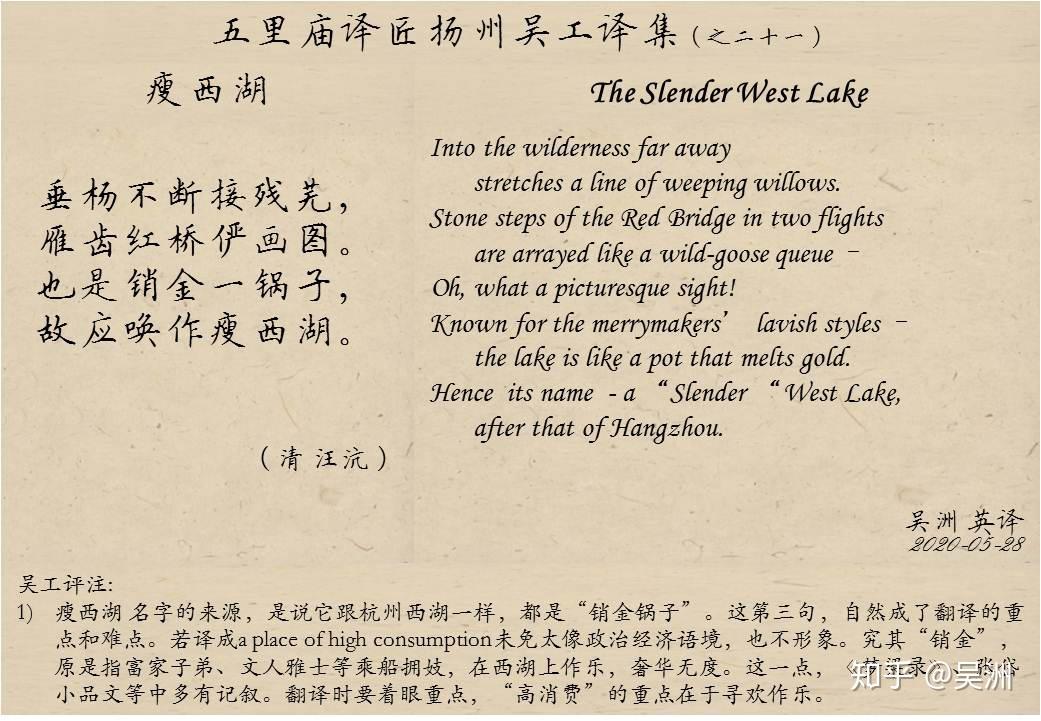 五里庙译匠扬州吴工译集(之二十一)
瘦西湖
垂杨不断接残芜，
雁齿红桥俨画图。
也是销金一锅子，
故应唤作瘦西湖。
(清 汪沆)
The Slender West Lake
Into the wilderness far away
stretches a line of weeping willows.
Stone steps of the Red Bridge in two flights
are arrayed like a wild-goose queue –
Oh, what a picturesque sight!
Known for the merrymakers’ lavish styles –
the lake is like a pot that melts gold.
Hence its name - a “Slender “West Lake,
after that of Hangzhou.
吴洲 英译
2020-05-28
吴工评注:
1) 瘦西湖 名字的来源，是说它跟杭州西湖一样，都是“销金锅子”。这第三句，自然成了翻译的重
点和难点。若译成a place of high consumption未免太像政治经济语境，也不形象。究其“销金”，
原是指富家子弟、文人雅士等乘船拥妓，在西湖上作乐，奢华无度。这一点，
小品文等中多有记叙。翻译时要着眼重点，“高消费”的重点在于寻欢作乐。
知乎 @吴洲